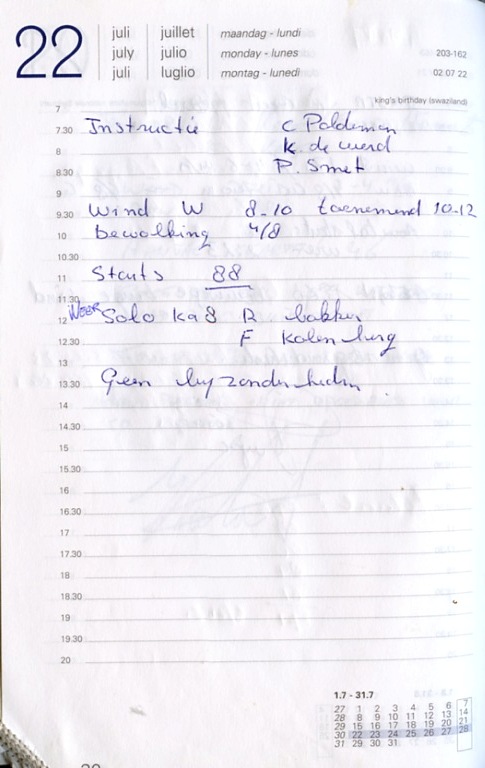 22
juli juillet maandag - lundi
july julio monday - lunes 203-162
juli luglio montag - lunedi 02.07 22
king's birthday (swaziland)
7
7.30 Instructie C Poldeman
8 K. de werd
8.30 P. Smet
9
9.30 Wind W 8-10 toenemend 10-12
10 bewolking 4/8
10.30
11 Starts 88
11.30
12 WEER Solo Ka8 R. bakker
12.30 F Kalenberg
13
13.30 Geen byzonderheden.
14
14.30
15
15.30
16
16.30
17
17.30
18
18.30
19
19.30
20
1.7 - 31.7
27 1 2 3 4 5 6 7
28 8 9 10 11 12 13 14
29 15 16 17 18 19 20 21
30 22 23 24 25 26 27 28
31 29 30 31